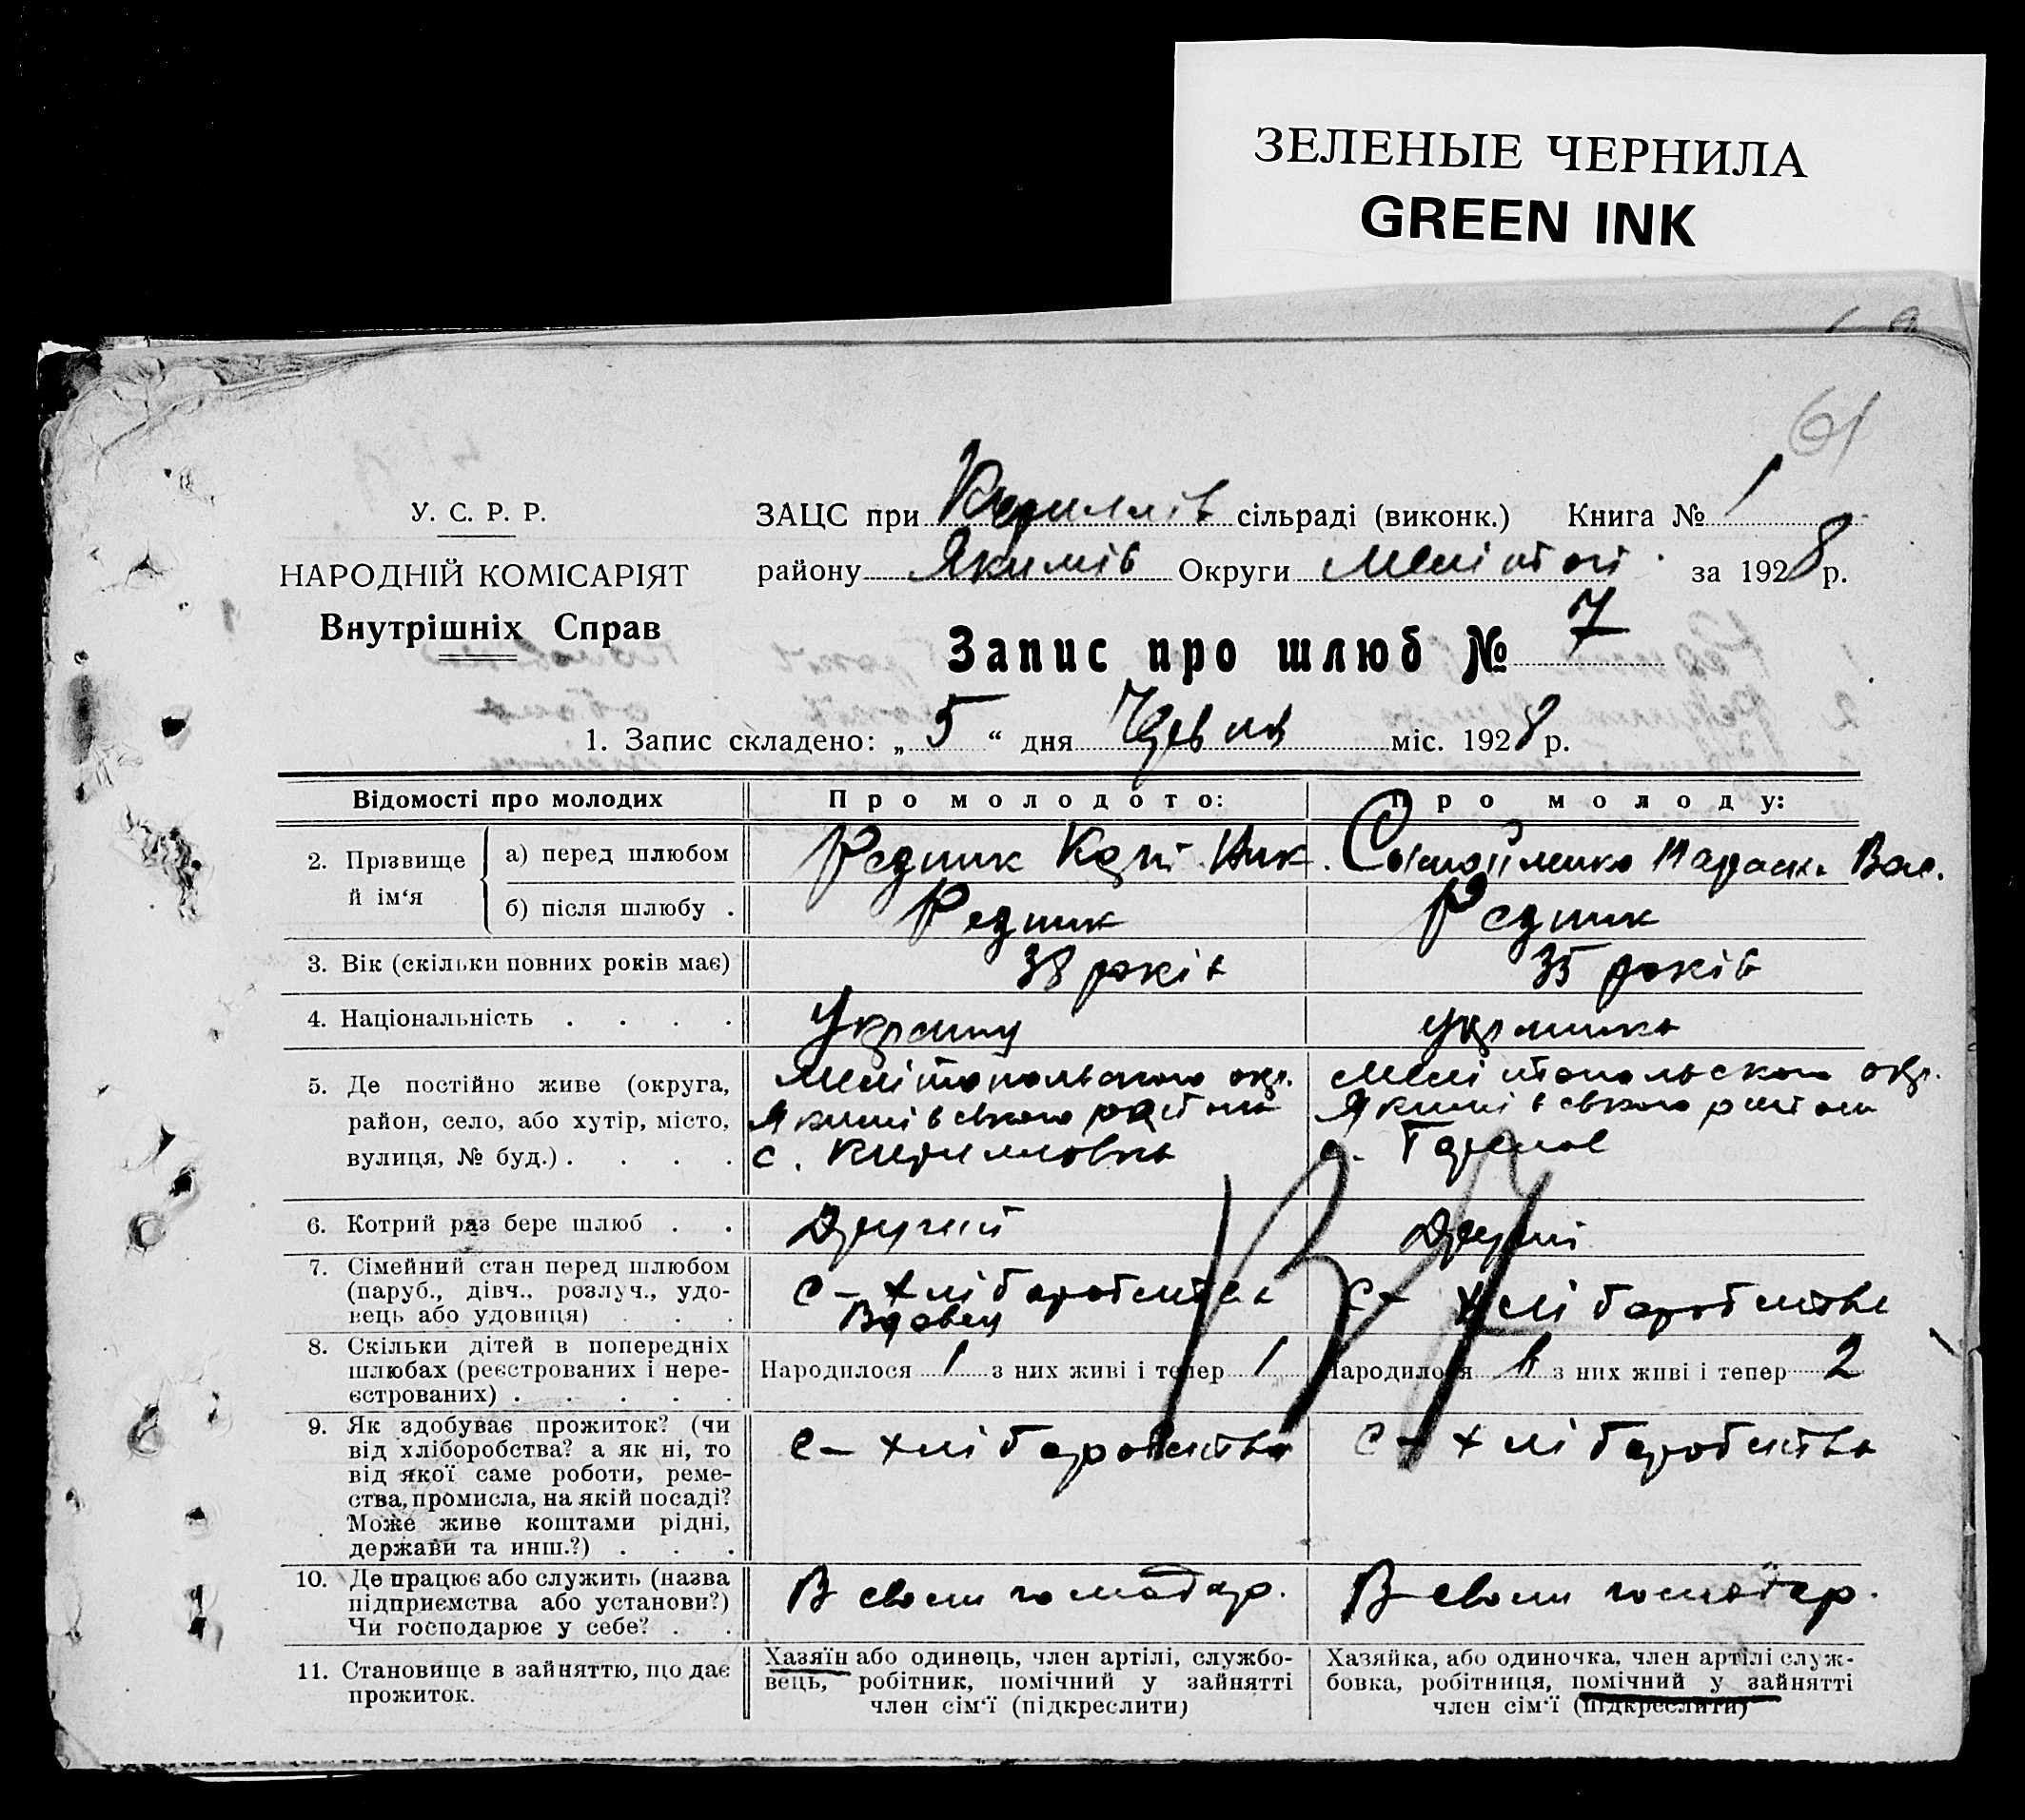 ЗЕЛЕНЫЕ ЧЕРНИЛА
GREEN INK
61
У. С. Р. Р.
НАРОДНІЙ КОМІСАРІЯТ
Внутрішніх Справ
ЗАЦС при Кириллів сільраді (виконк.) Книга № 1
району Якимів Округи Мелітоп. за 1928 р.
Запис про шлюб № 7
1. Запис складено: „ 5 “ дня Червня міс. 1928 р.
Відомості про молодих
Про молодого:
Про молоду:
2. Прізвище й ім‘я
а) перед шлюбом
Редник Ник.
Самойленко Вас.
б) після шлюбу .
Редник
Редник
3. Вік (скільки повних років має)
38 років
35 років
4. Національність . . . .
Українц
українка
5. Де постійно живе (округа,
район, село, або хутір, місто,
вулиця, № буд.) . . . .
Мелітопольського окр.
Якимівського району
с. Кирилловка
Мелітопольского окр.
Якимівського району
с.
6. Котрий раз бере шлюб . .
Другий
Другий
7. Сімейний стан перед шлюбом
(паруб., дівч., розлуч., удо-
вець або удовиця) . . .
с-хліборобства
Вдовец
с-хліборобства
8. Скільки дітей в попередніх
шлюбах (реєстрованих і нере-
єстрованих) . . . . .
Народилося 1 з них живі і тепер 1
Народилося з них живі і тепер 2
9. Як здобуває прожиток? (чи
від хліборобства? а як ні, то
від якої саме роботи, реме-
ства, промисла, на якій посаді?
Може живе коштами рідні,
держави та инш.?) . . .
с-хліборобства
с-хліборобства
10. Де працює або служить (назва
підприємства або установи?)
Чи господарює у себе? . .
В своем господар.
В своем господар.
11. Становище в зайняттю, що дає
прожиток.
Хазяїн або одинець, член артілі, службо-
вець, робітник, помічний у зайнятті
член сім‘ї (підкреслити)
Хазяйка, або одиночка, член артілі служ-
бовка, робітниця, помічний у зайнятті
член сім‘ї (підкреслити)